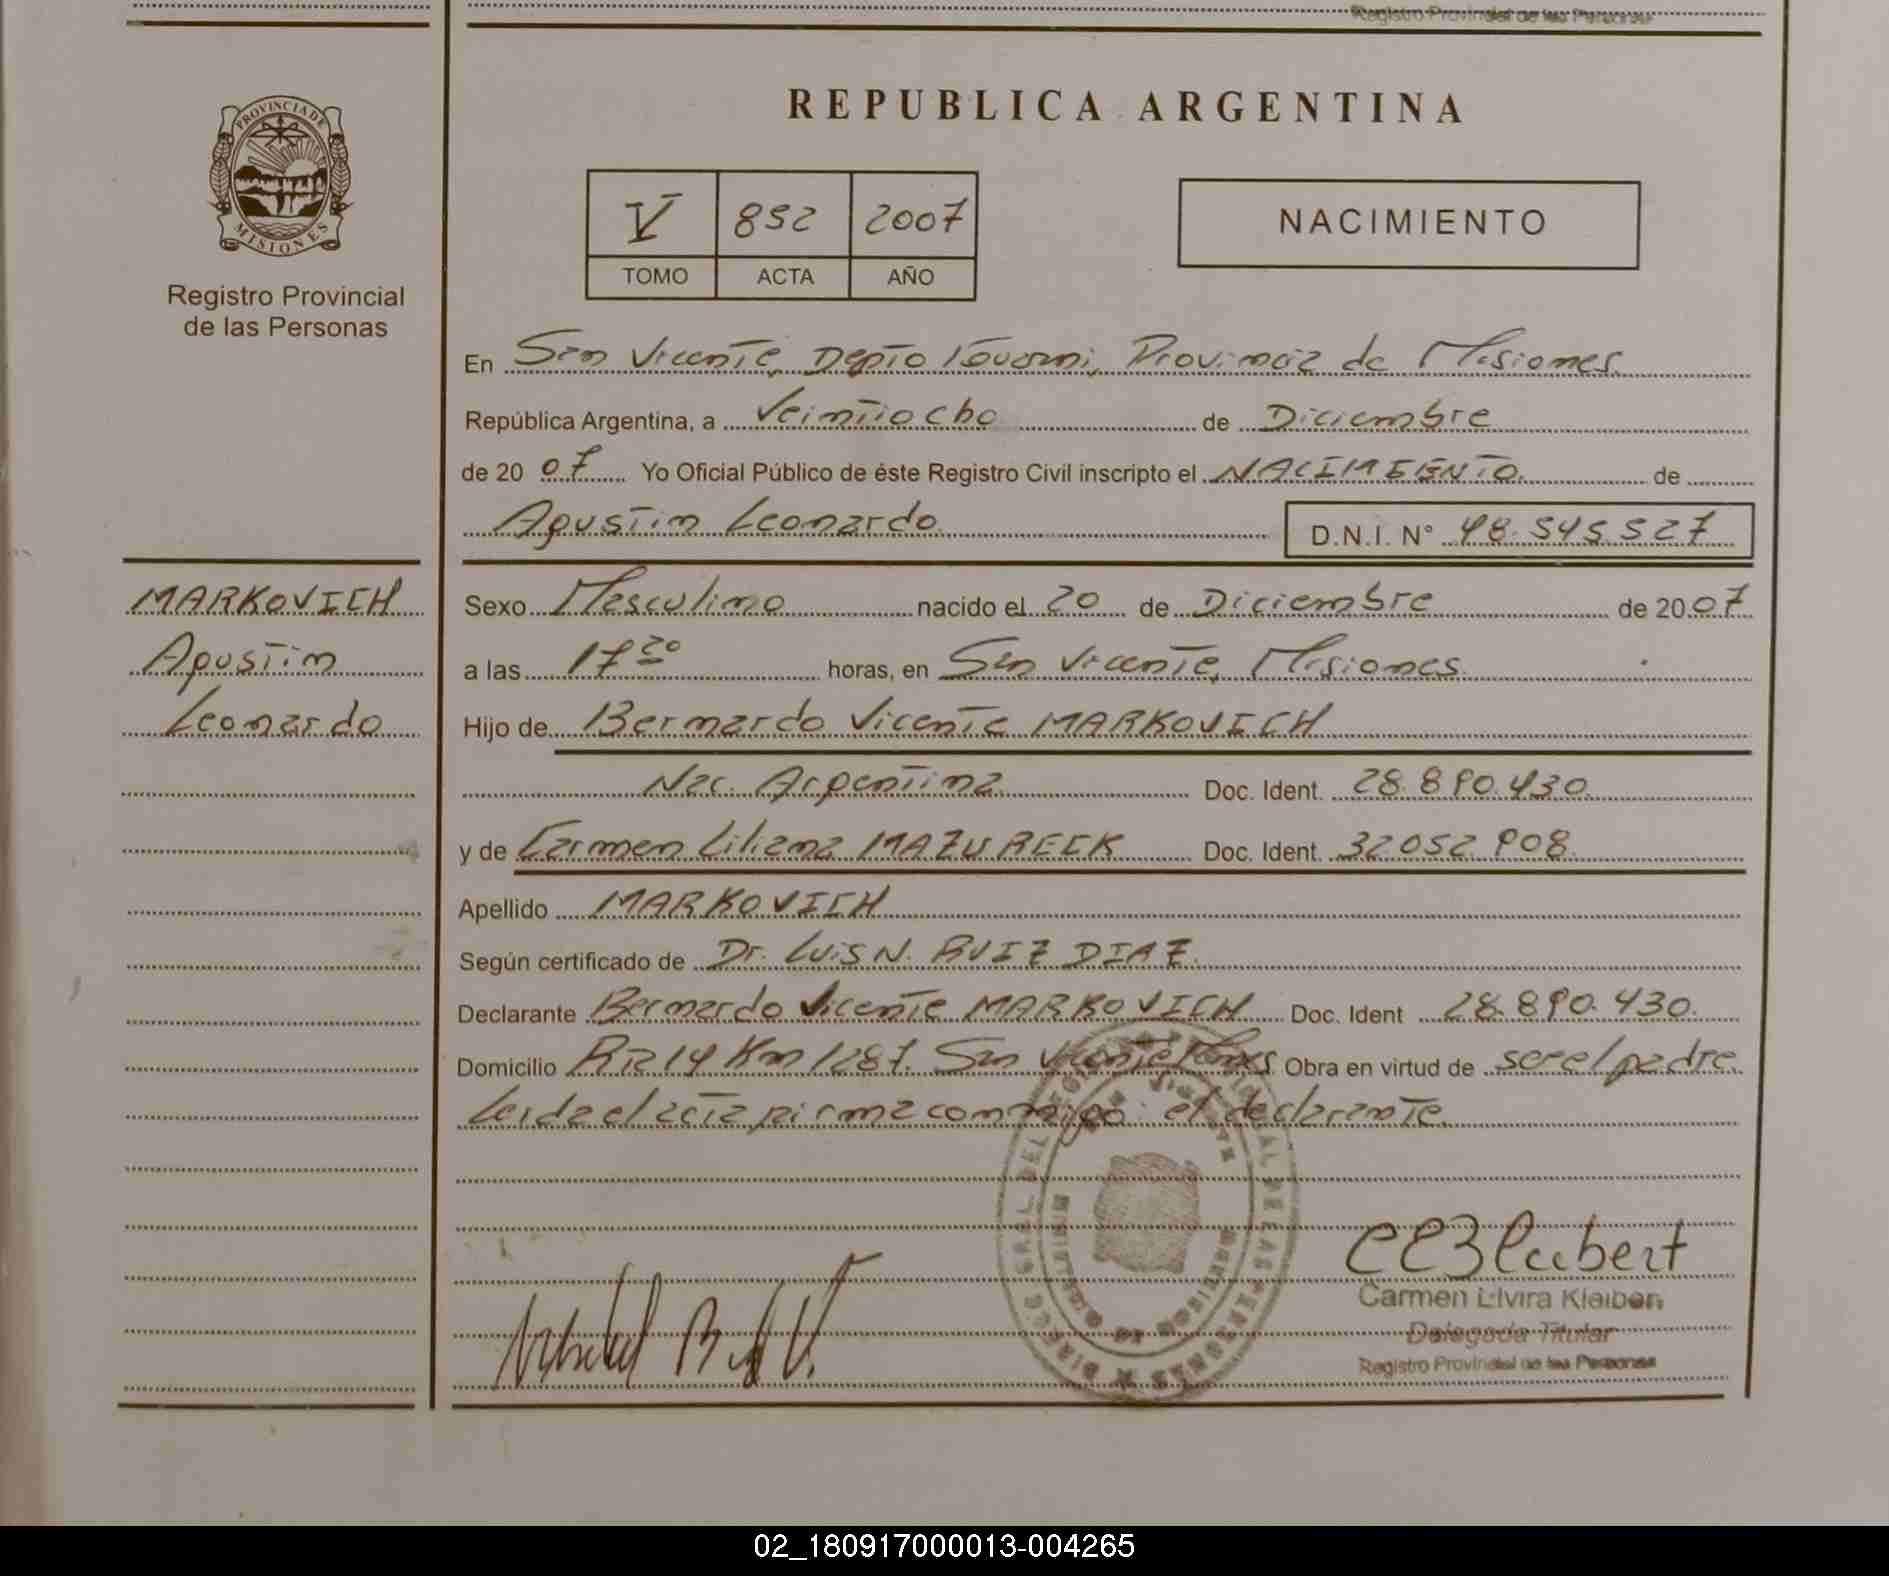 Registro Provincial de las Personas
PROVINCIA DE
MISIONES
Registro Provincial
de las Personas
REPUBLICA ARGENTINA
V 852 2007
TOMO ACTA AÑO
NACIMIENTO
En San Vicente, Depto Guarani, Provincia de Misiones
República Argentina, a Veintiocho de Diciembre
de 2007 Yo Oficial Público de éste Registro Civil inscripto el NACIMIENTO. de
Agustin Leonardo D.N.I. N° 48.545.527
MARKOVICH
Agustin
Leonardo
Sexo Masculino nacido el 20 de Diciembre de 2007
a las 17 20 horas, en San Vicente, Misiones
Hijo de Bernardo Vicente MARKOVICH
Nac. Argentina Doc. Ident. 28.890.430
y de Carmen Liliana MAZURECK Doc. Ident. 32.052.908
Apellido MARKOVICH
Según certificado de Dr. Luis N. RUIZ DIAZ.
Declarante Bernardo Vicente MARKOVICH Doc. Ident 28.890.430.
Domicilio R.N 14 Km 1287. San Vicente Mnes Obra en virtud de ser el padre.
Leida el acta firma conmigo: el declarante.
Carmen Elvira Kleiber
Delegada Titular
Registro Provincial de las Personas
02_180917000013-004265